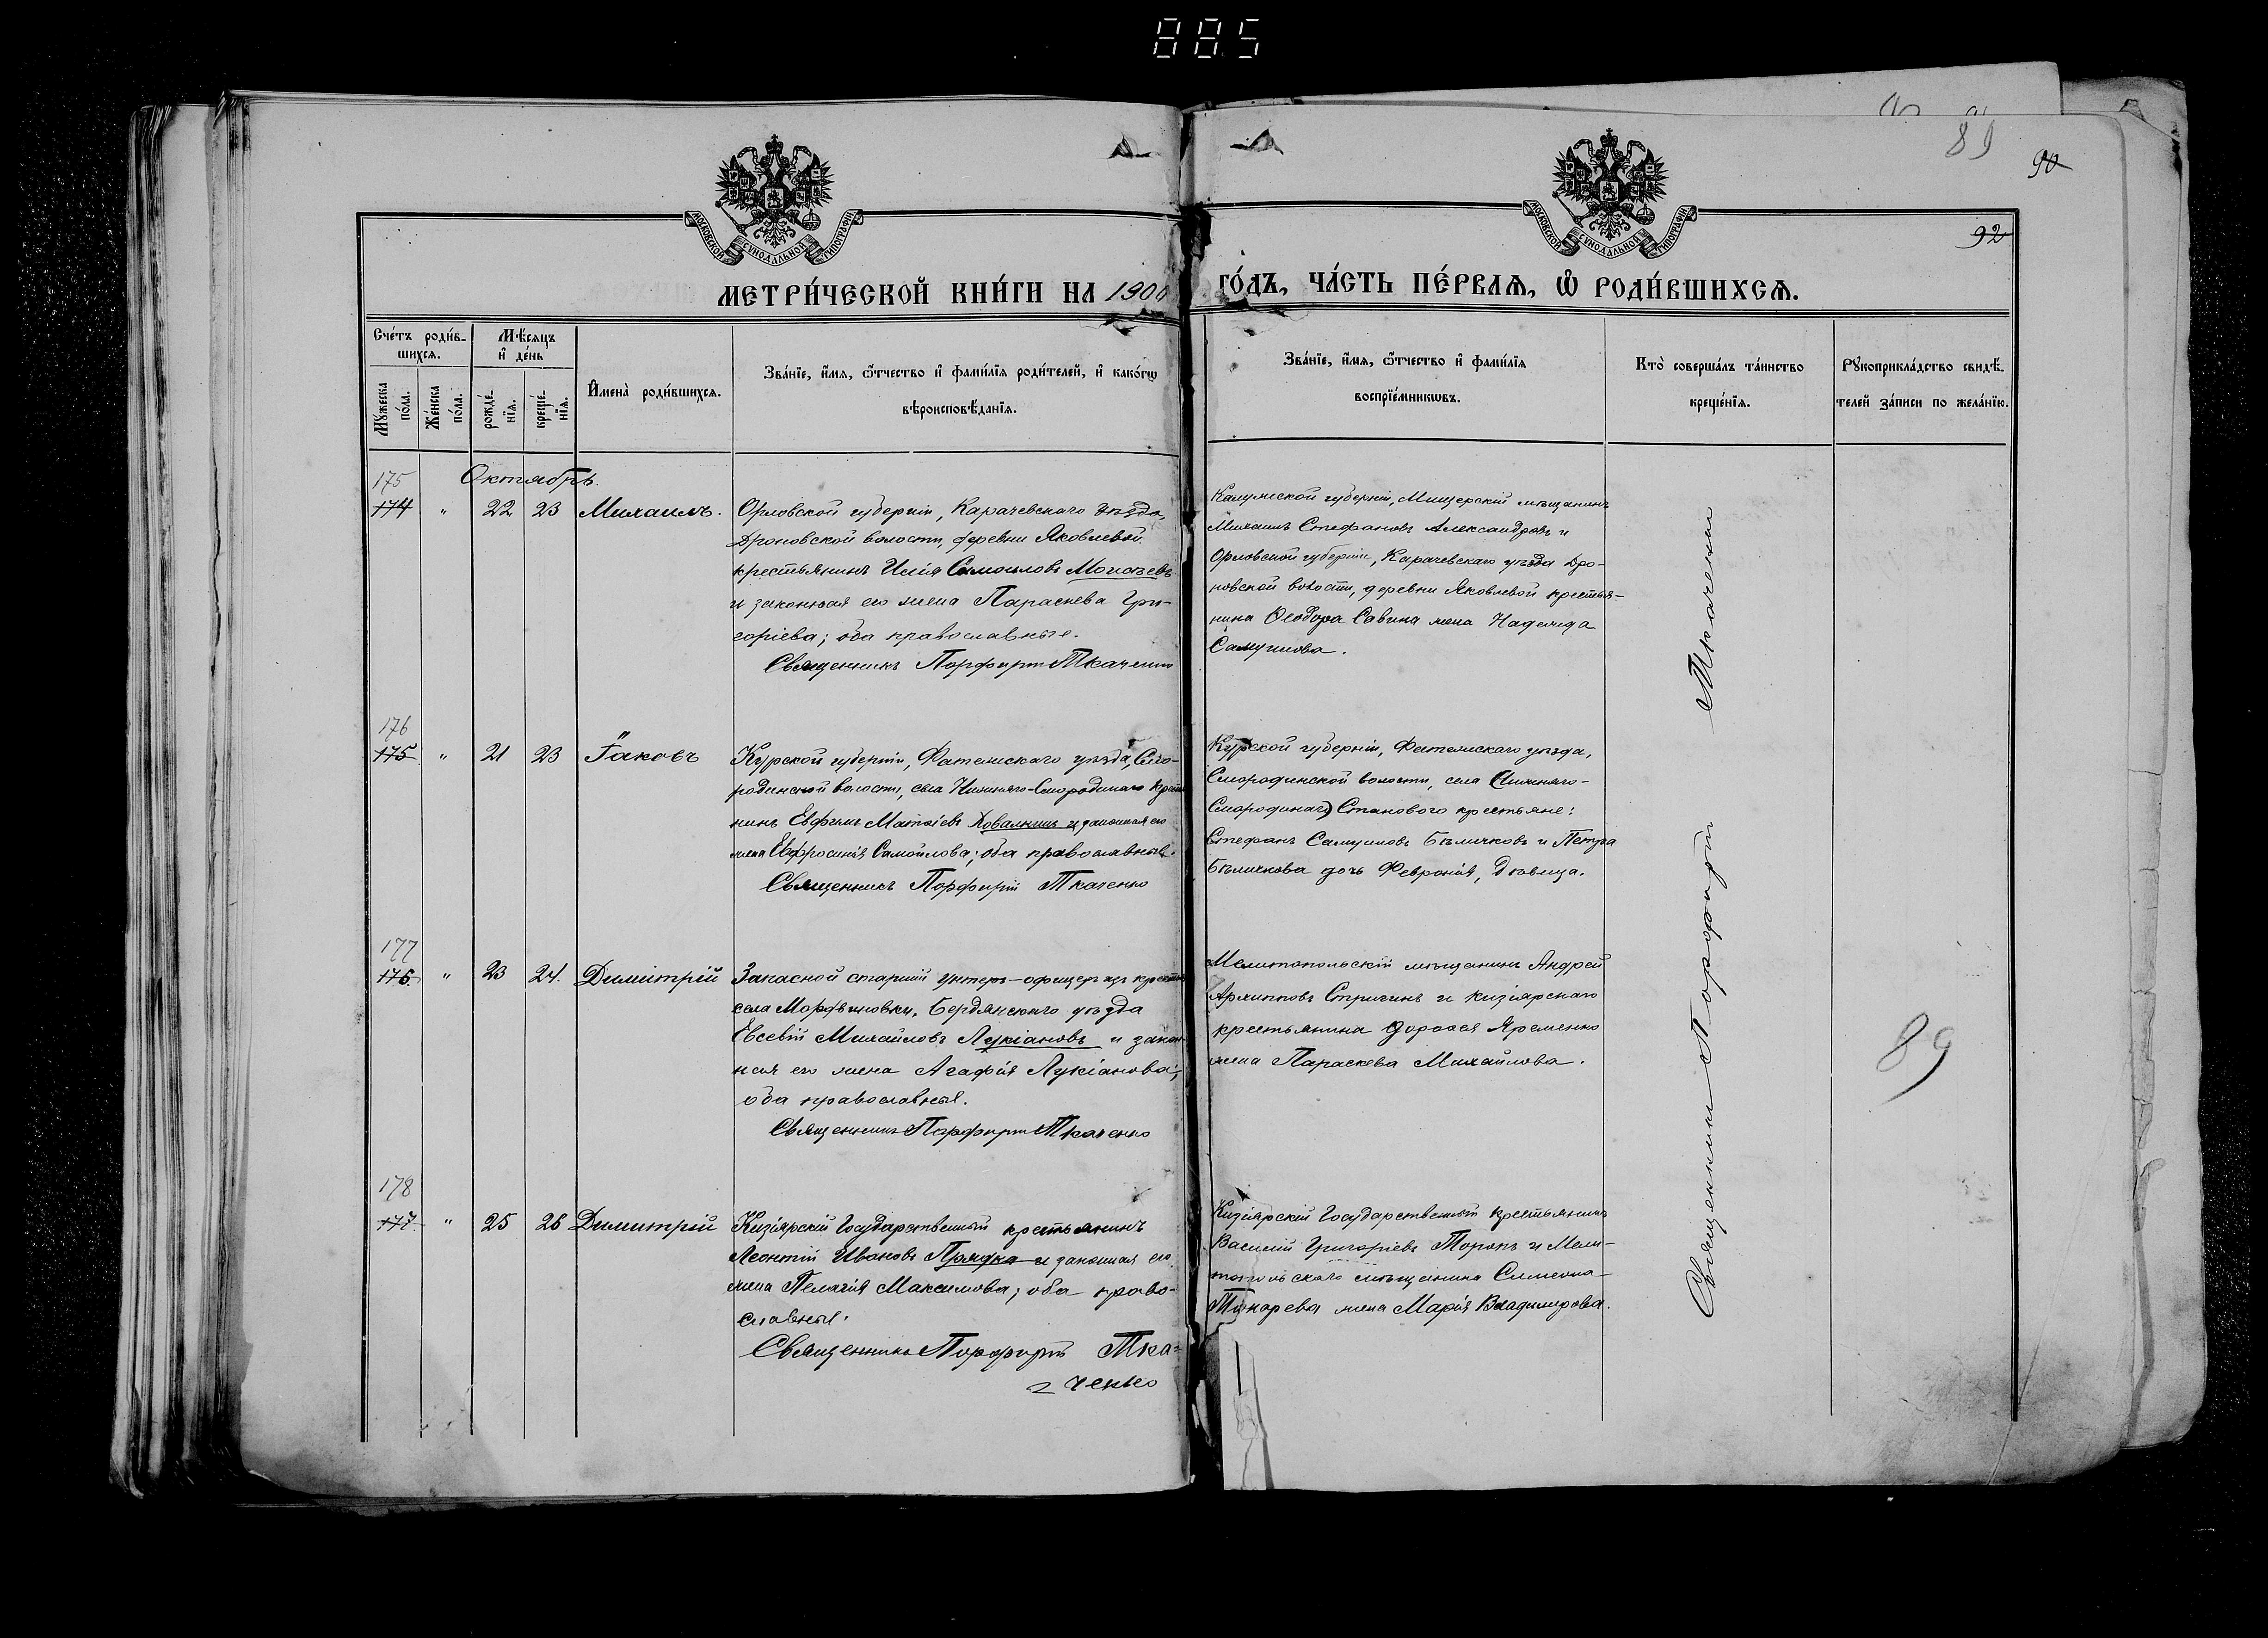 885
89
90
92
МОСКОВСКОЙ СУНОДАЛЬНОЙ ТИПОГРАФІИ
МОСКОВСКОЙ СУНОДАЛЬНОЙ ТИПОГРАФІИ
МЕТРИ́ЧЕСКОЙ КНИ́ГИ НА 1900 ГО́ДЪ, ЧА́СТЬ ПЕ́РВАѦ, Ѿ РОДИ́ВШИХСѦ.
Сче́тъ роди́в-
шихсѧ.
Мѣ́сѧцъ
и҆ де́нь
Мꙋжеска по́ла.
Же́нска по́ла.
рожде́-
нїѧ.
креще́-
нїѧ.
И҆мена̀ роди́вшихсѧ.
Зва́нїе, и҆́мѧ, ѻ҆́тчество и҆ фами́лїѧ роди́телей, и҆ како́гѡ
вѣроисповѣ́данїѧ.
Зва́нїе, и҆́мѧ, ѻ҆́тчество и҆ фами́лїѧ
воспрїе́мникѡвъ.
Кто̀ соверша́лъ та́инство
креще́нїѧ.
Рꙋкоприкла́дство свидѣ́-
телей за́писи по жела́нїю.
Октябрь.
175
174 " 22 23 Михаилъ.
Орловской губерніи, Карачевскаго уѣзда,
Дроновской волости, деревни Яковлевой
крестьянинъ Илія Самоиловъ
и законная его жена Параскева Гри-
горіева; оба православные.
Священникъ Порфирій Ткаченко
Калужской губерніи, Мещерскій мѣщанинъ
Михаилъ Стефановъ Александровъ и
Орловской губерніи, Карачевскаго уѣзда Дро-
новской волости, деревни Яковлевой крестья-
нина Ѳеодора Савина жена Надежда
Самуилова.
176
175 " 21 23 Іаковъ
Курской губерніи, Фатежскаго уѣзда, Смо-
родинской волости, села Нижняго-Смородинаго
нинъ Евфимъ Матѳіевъ Ковалкинъ и законная его
жена Евфросинія Самоилова; оба православные.
Священникъ Порфирій Ткаченко
Курской губерніи, Фатежскаго уѣзда,
Смородинской волости, села (Нижняго-
Смородинаго) Становаго крестьяне:
Стефанъ Самуиловъ Бѣличковъ и Петра
Бѣличкова дочь Февронія, дѣвица.
177
176 " 23 24. Димитрій
Запасной старшій унтеръ-офицеръ изъ крестьянъ
села Мордвиновки, Бердянскаго уѣзда
Евсевій Михайловъ Лукіановъ и закон-
ная его жена Агафія Лукіанова;
оба православныя.
Священникъ Порфирій Ткаченко
Мелитопольскій мѣщанинъ Андрей
Архиповъ Стригинъ и Кизіярскаго
крестьянина Дороѳея Яременко
жена Параскева Михайлова.
89
178
177 " 25 26 Димитрій
Кизіярскій Государственный крестьянинъ
Леонтій Ивановъ Прядка и законная его
жена Пелагія Максимова; оба право-
славныя.
Священникъ Порфирій Тка-
ченко
Кизіярскій Государственный крестьянинъ
Василій Григоріевъ Торопъ и Мели-
топольскаго мѣщанина Симеона
Токарева жена Марія Владимирова.
Священникъ Порфирій Ткаченко